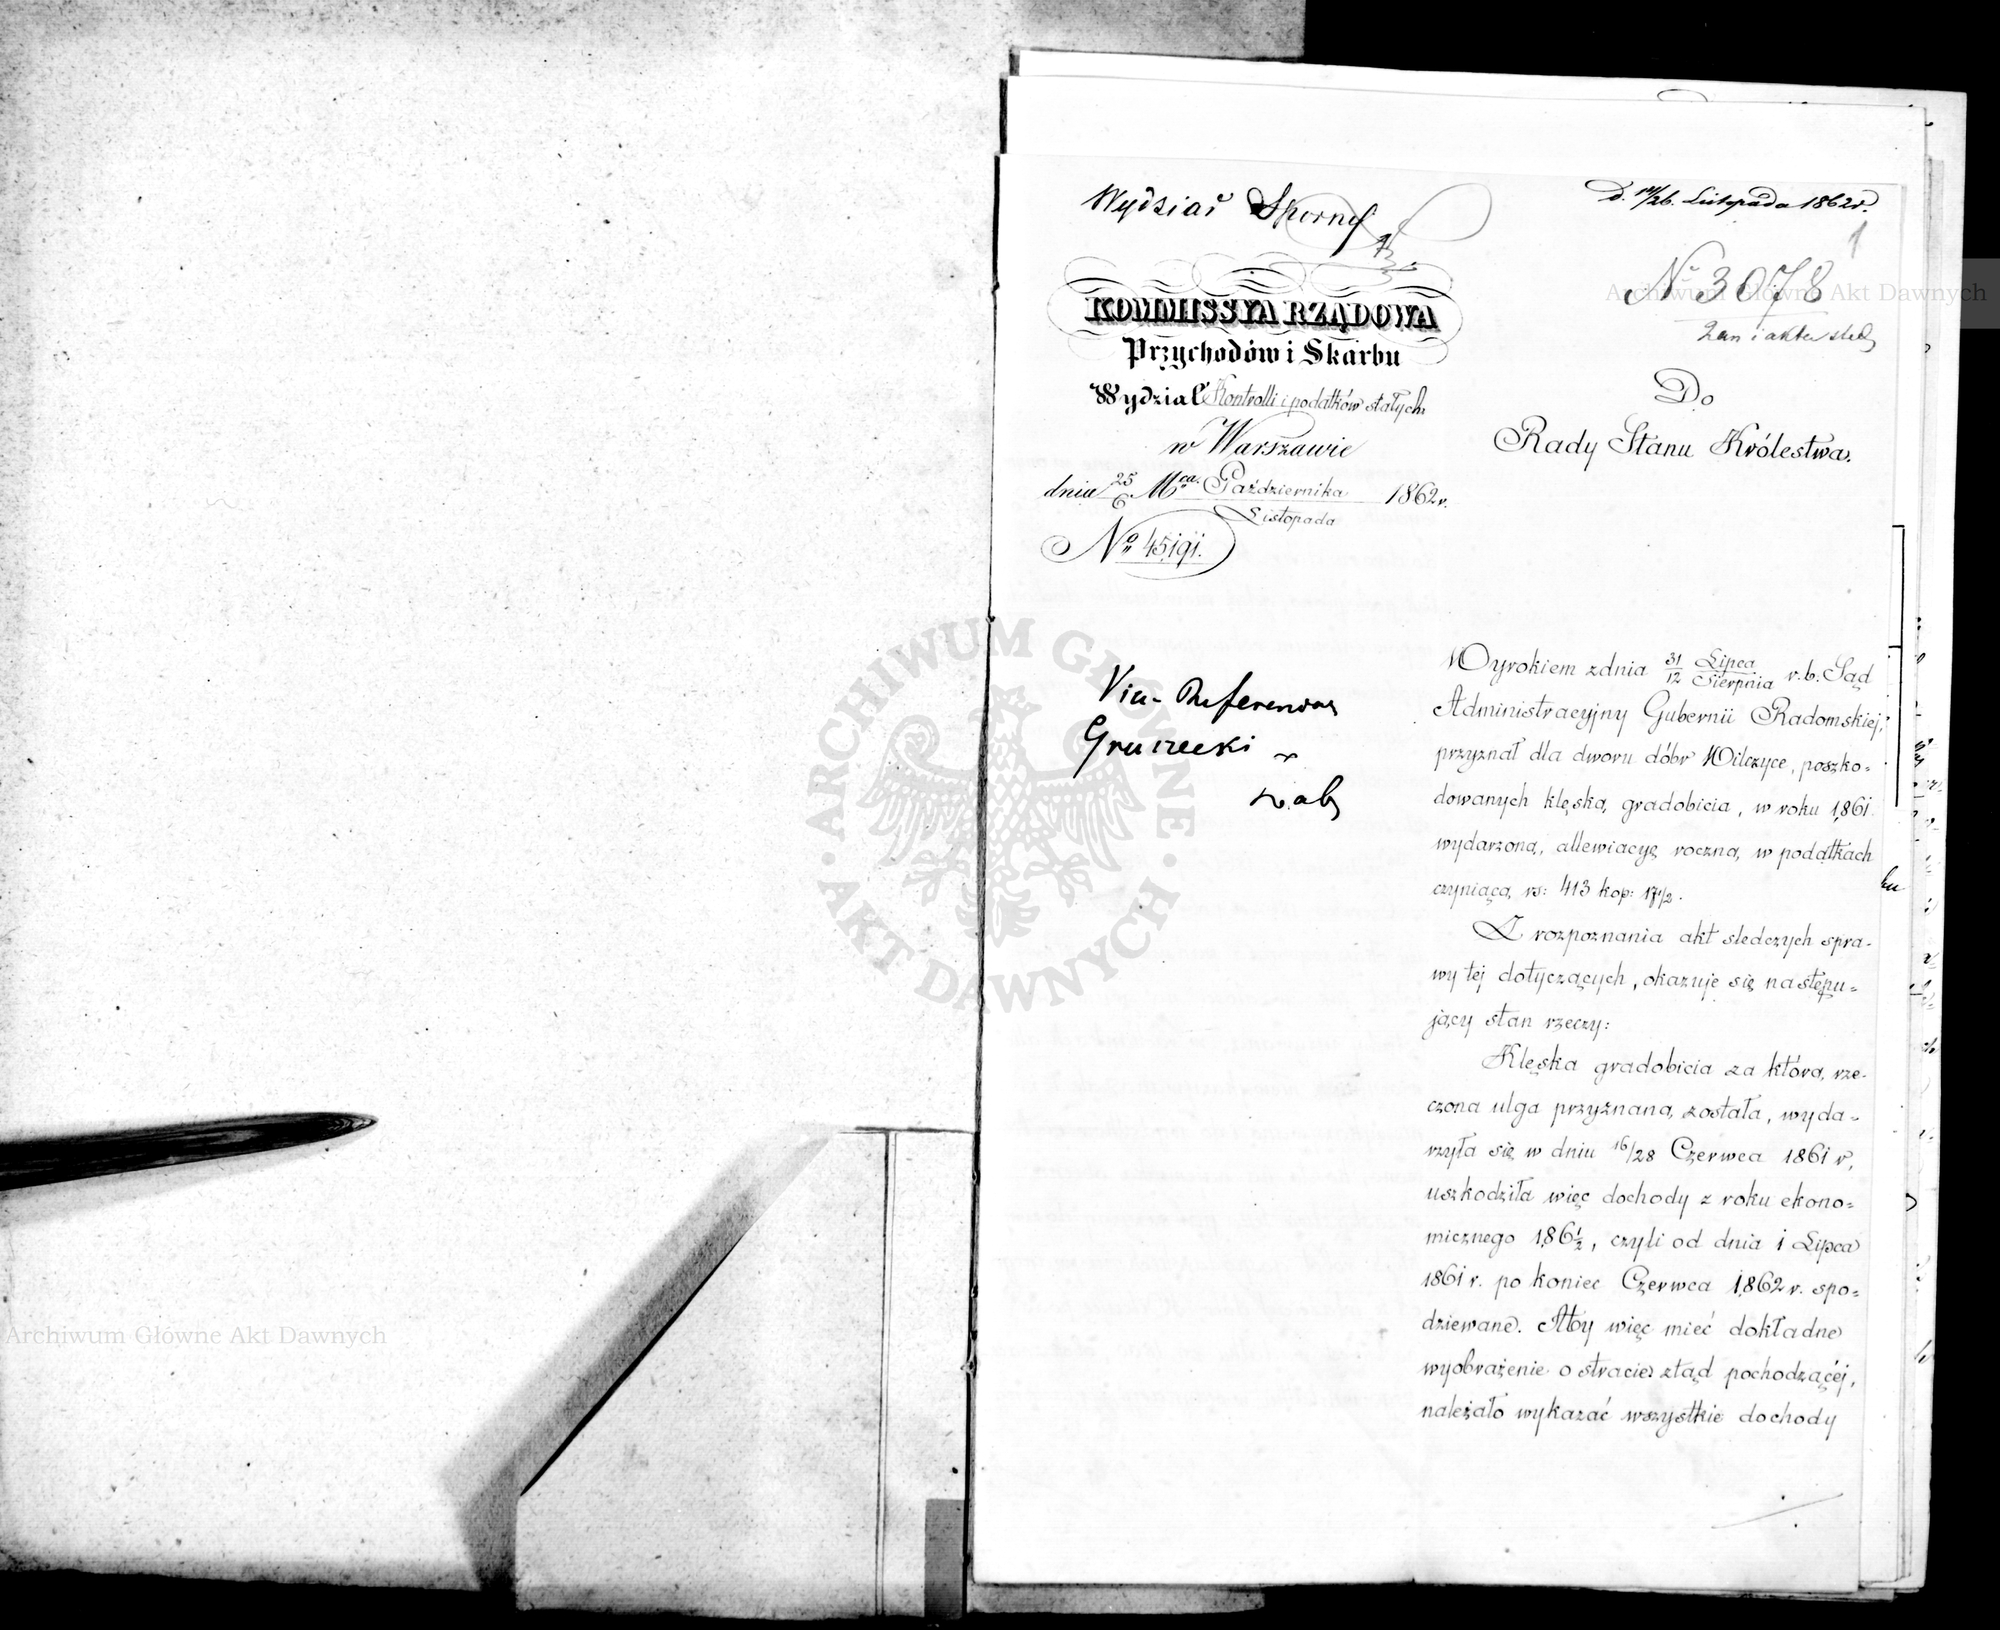 Wydział Sporny
D. 14/26. Listopada 1862 r.
1
№ 3078
KOMMISSYA RZĄDOWA
Przychodów i Skarbu
Wydział Kontrolli i podatków stałych
w Warszawie
dnia 25/6 Mca. Października/Listopada 1862 r.
No 45,191.
Do
Rady Stanu Królestwa.
Vice-Referendarz
Gruszecki
Wyrokiem z dnia 31/12 Lipca/Sierpnia r. b. Sąd
Administracyjny Gubernii Radomskiej,
przyznał dla dworu dóbr Wilczyce, poszko-
dowanych klęską gradobicia, w roku 1861
wydarzoną, allewiacyę roczną w podatkach
czyniącą rs: 413 kop: 17 1/2.
Z rozpoznania akt śledczych spra-
wy tej dotyczących, okazuje się następu-
jący stan rzeczy:
Klęska gradobicia za którą rze-
czona ulga przyznaną została, wyda-
rzyła się w dniu 16/28 Czerwca 1861 r,
uszkodziła więc dochody z roku ekono-
micznego 186 1/2, czyli od dnia 1 Lipca
1861 r. po koniec Czerwca 1862 r. spo-
dziewane. Aby więc mieć dokładne
wyobrażenie o stracie ztąd pochodzącéj,
należało wykazać wszystkie dochody
ARCHIWUM GŁÓWNE AKT DAWNYCH
Archiwum Główne Akt Dawnych
Archiwum Główne Akt Dawnych